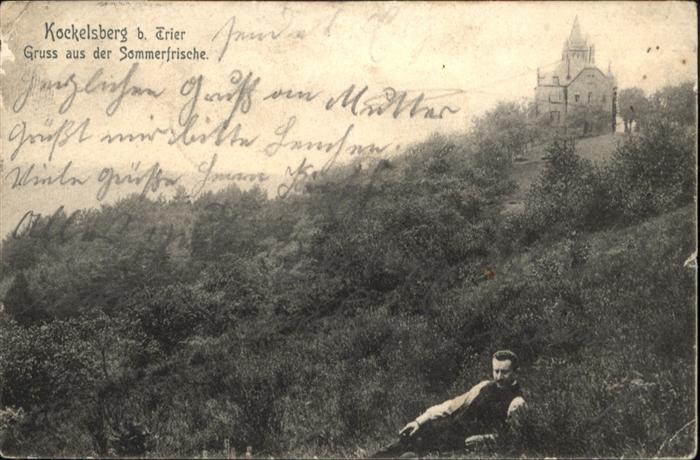 Kockelsberg b. Trier
Gruss aus der Sommerfrische.
sende
Herzlichen Gruß an Mutter
Grüßt mir bitte Lenchen.
Viele Grüße